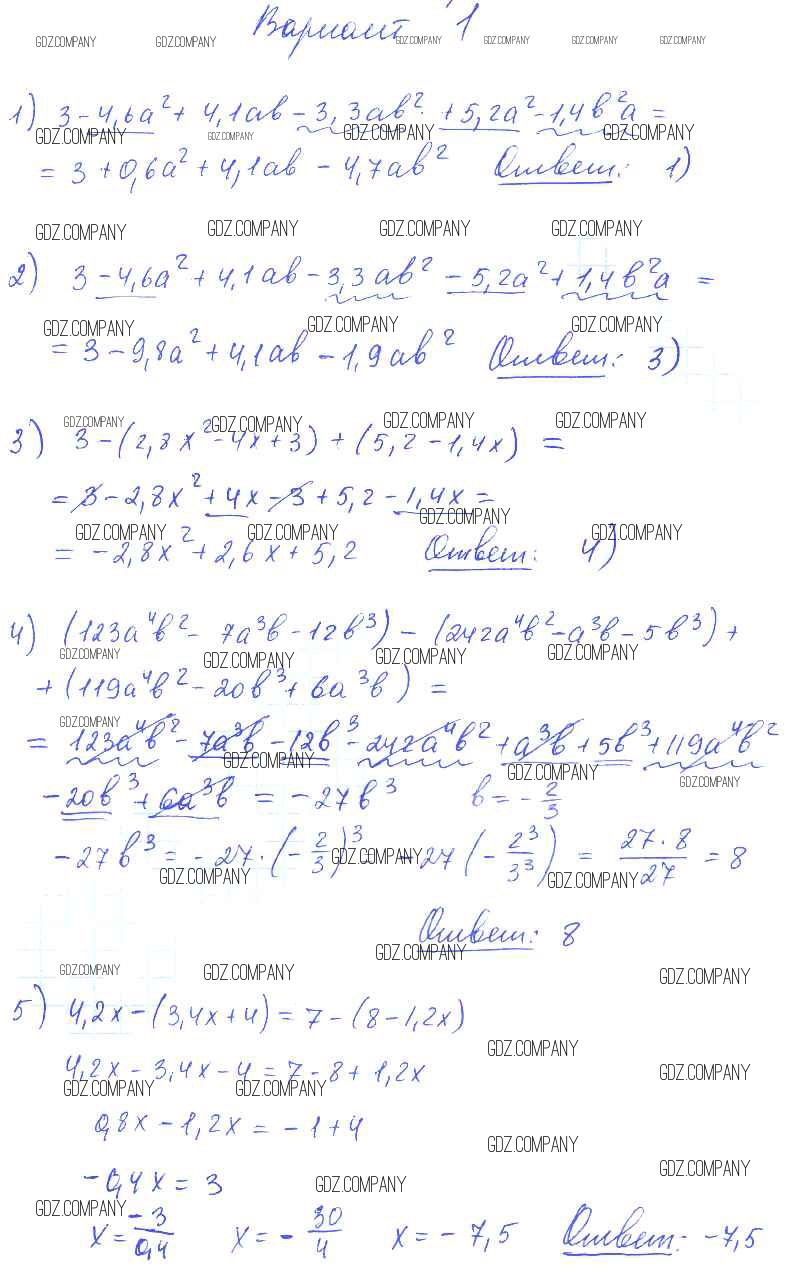 Вариант 1
GDZ.COMPANY GDZ.COMPANY GDZ.COMPANY GDZ.COMPANY GDZ.COMPANY GDZ.COMPANY
1) 3 - 4,6a² + 4,1ab - 3,3ab² + 5,2a² - 1,4b²a =
GDZ.COMPANY GDZ.COMPANY GDZ.COMPANY GDZ.COMPANY
= 3 + 0,6a² + 4,1ab - 4,7ab² Ответ: 1)
GDZ.COMPANY GDZ.COMPANY GDZ.COMPANY GDZ.COMPANY
2) 3 - 4,6a² + 4,1ab - 3,3ab² - 5,2a² + 1,4b²a =
GDZ.COMPANY GDZ.COMPANY GDZ.COMPANY
= 3 - 9,8a² + 4,1ab - 1,9ab² Ответ: 3)
GDZ.COMPANY GDZ.COMPANY GDZ.COMPANY GDZ.COMPANY
3) 3 - (2,8x² - 4x + 3) + (5,2 - 1,4x) =
= 3 - 2,8x² + 4x - 3 + 5,2 - 1,4x =
GDZ.COMPANY
GDZ.COMPANY GDZ.COMPANY GDZ.COMPANY
= -2,8x² + 2,6x + 5,2 Ответ: 4)
4) (123a⁴b² - 7a³b - 12b³) - (242a⁴b² - a³b - 5b³) +
GDZ.COMPANY GDZ.COMPANY GDZ.COMPANY GDZ.COMPANY
+ (119a⁴b² - 20b³ + 6a³b) =
GDZ.COMPANY
= 123a⁴b² - 7a³b - 12b³ - 242a⁴b² + a³b + 5b³ + 119a⁴b²
GDZ.COMPANY GDZ.COMPANY GDZ.COMPANY
- 20b³ + 6a³b = -27b³ b = -2/3
-27b³ = -27 · (-2/3)³ = -27 (-2³/3³) = 27·8/27 = 8
GDZ.COMPANY GDZ.COMPANY GDZ.COMPANY
Ответ: 8
GDZ.COMPANY
GDZ.COMPANY GDZ.COMPANY GDZ.COMPANY
5) 4,2x - (3,4x + 4) = 7 - (8 - 1,2x)
GDZ.COMPANY
4,2x - 3,4x - 4 = 7 - 8 + 1,2x
GDZ.COMPANY GDZ.COMPANY GDZ.COMPANY
0,8x - 1,2x = -1 + 4
GDZ.COMPANY
GDZ.COMPANY
-0,4x = 3
GDZ.COMPANY
GDZ.COMPANY
x = -3/0,4 x = -30/4 x = -7,5 Ответ: -7,5